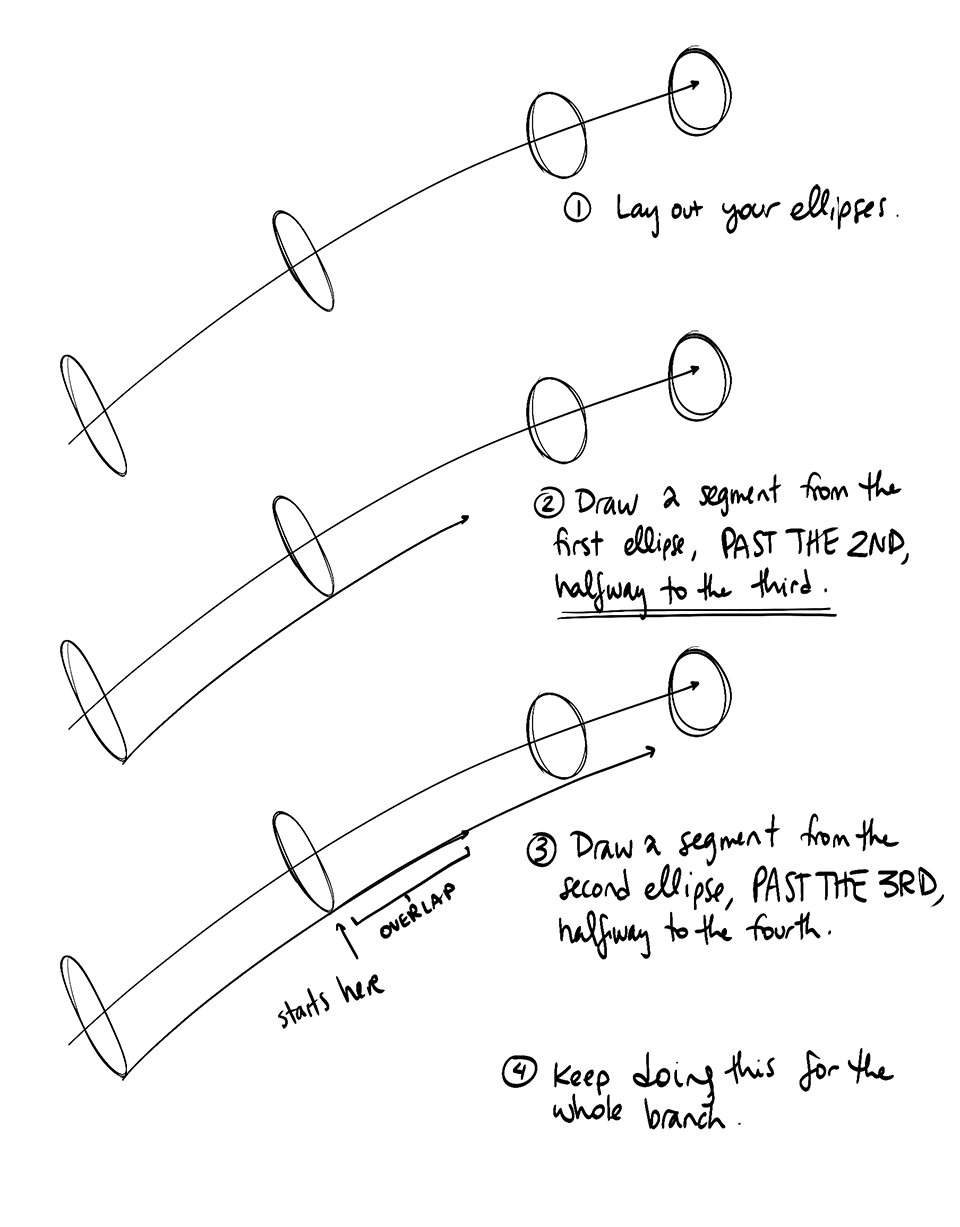 ① Lay out your ellipses.
② Draw a segment from the
first ellipse, PAST THE 2ND,
halfway to the third.
③ Draw a segment from the
second ellipse, PAST THE 3RD,
halfway to the fourth.
OVERLAP
starts here
④ Keep doing this for the
whole branch.